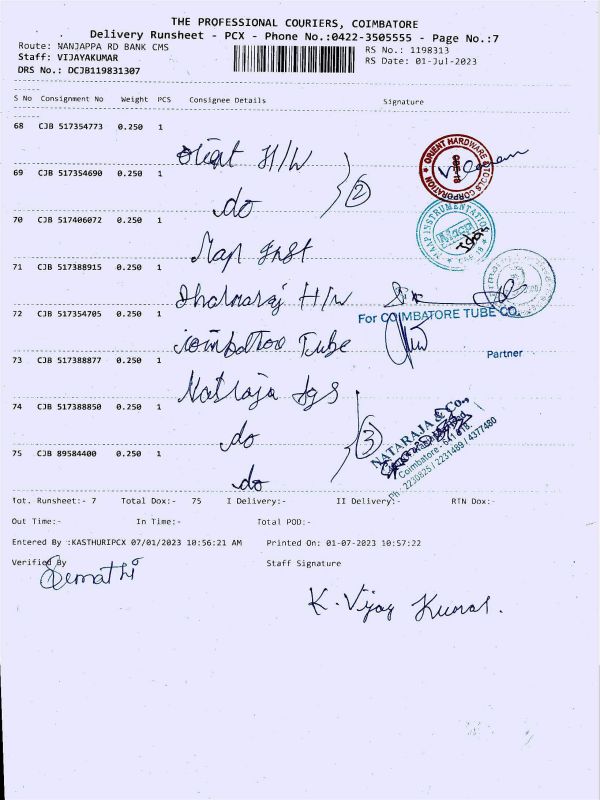 THE PROFESSIONAL COURIERS, COIMBATORE
Delivery Runsheet - PCX - Phone No.:0422-3505555 - Page No.:7
Route: NANJAPPA RD BANK CMS
RS No.: 1198313
Staff: VIJAYAKUMAR
RS Date: 01-Jul-2023
DRS No.: DCJB119831307
S No Consignment No Weight PCS Consignee Details Signature
68 CJB 517354773 0.250 1
Orient H/W
ORIENT HARDWARE & TOOLS CORPORATION
69 CJB 517354690 0.250 1
do
2
70 CJB 517406072 0.250 1
Map Inst
INSTRUMENTATION
71 CJB 517388915 0.250 1
Dharmaraj H/W
72 CJB 517354705 0.250 1
For COIMBATORE TUBE CO.
Coimbatore Tube
Partner
73 CJB 517388877 0.250 1
Natraja Ags
74 CJB 517388850 0.250 1
do
3
NATARAJA & Co.,
Coimbatore - 641 018.
Ph : 2230825 / 2231489 / 4377480
75 CJB 89584400 0.250 1
do
Tot. Runsheet:- 7 Total Dox:- 75 I Delivery:- II Delivery:- RTN Dox:-
Out Time:- In Time:- Total POD:-
Entered By :KASTHURIPCX 07/01/2023 10:56:21 AM Printed On: 01-07-2023 10:57:22
Verified By Staff Signature
K. Vijay Kumar.